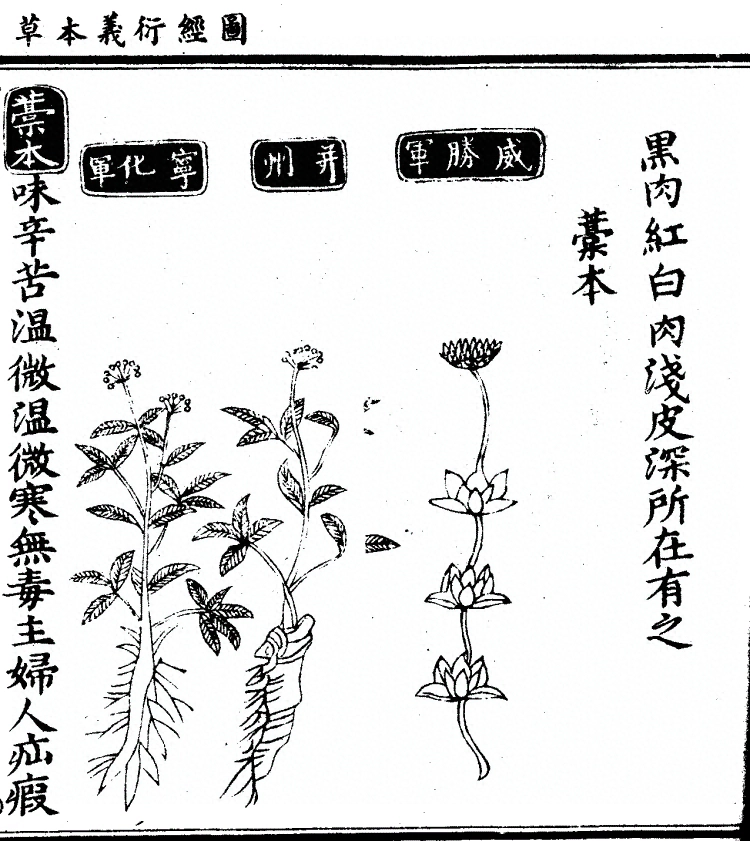 圖經衍義本草
黑肉紅白肉淺皮深所在有之
藁本
威勝軍
并州
寧化軍
藁本味辛苦温微温微寒無毒主婦人疝瘕